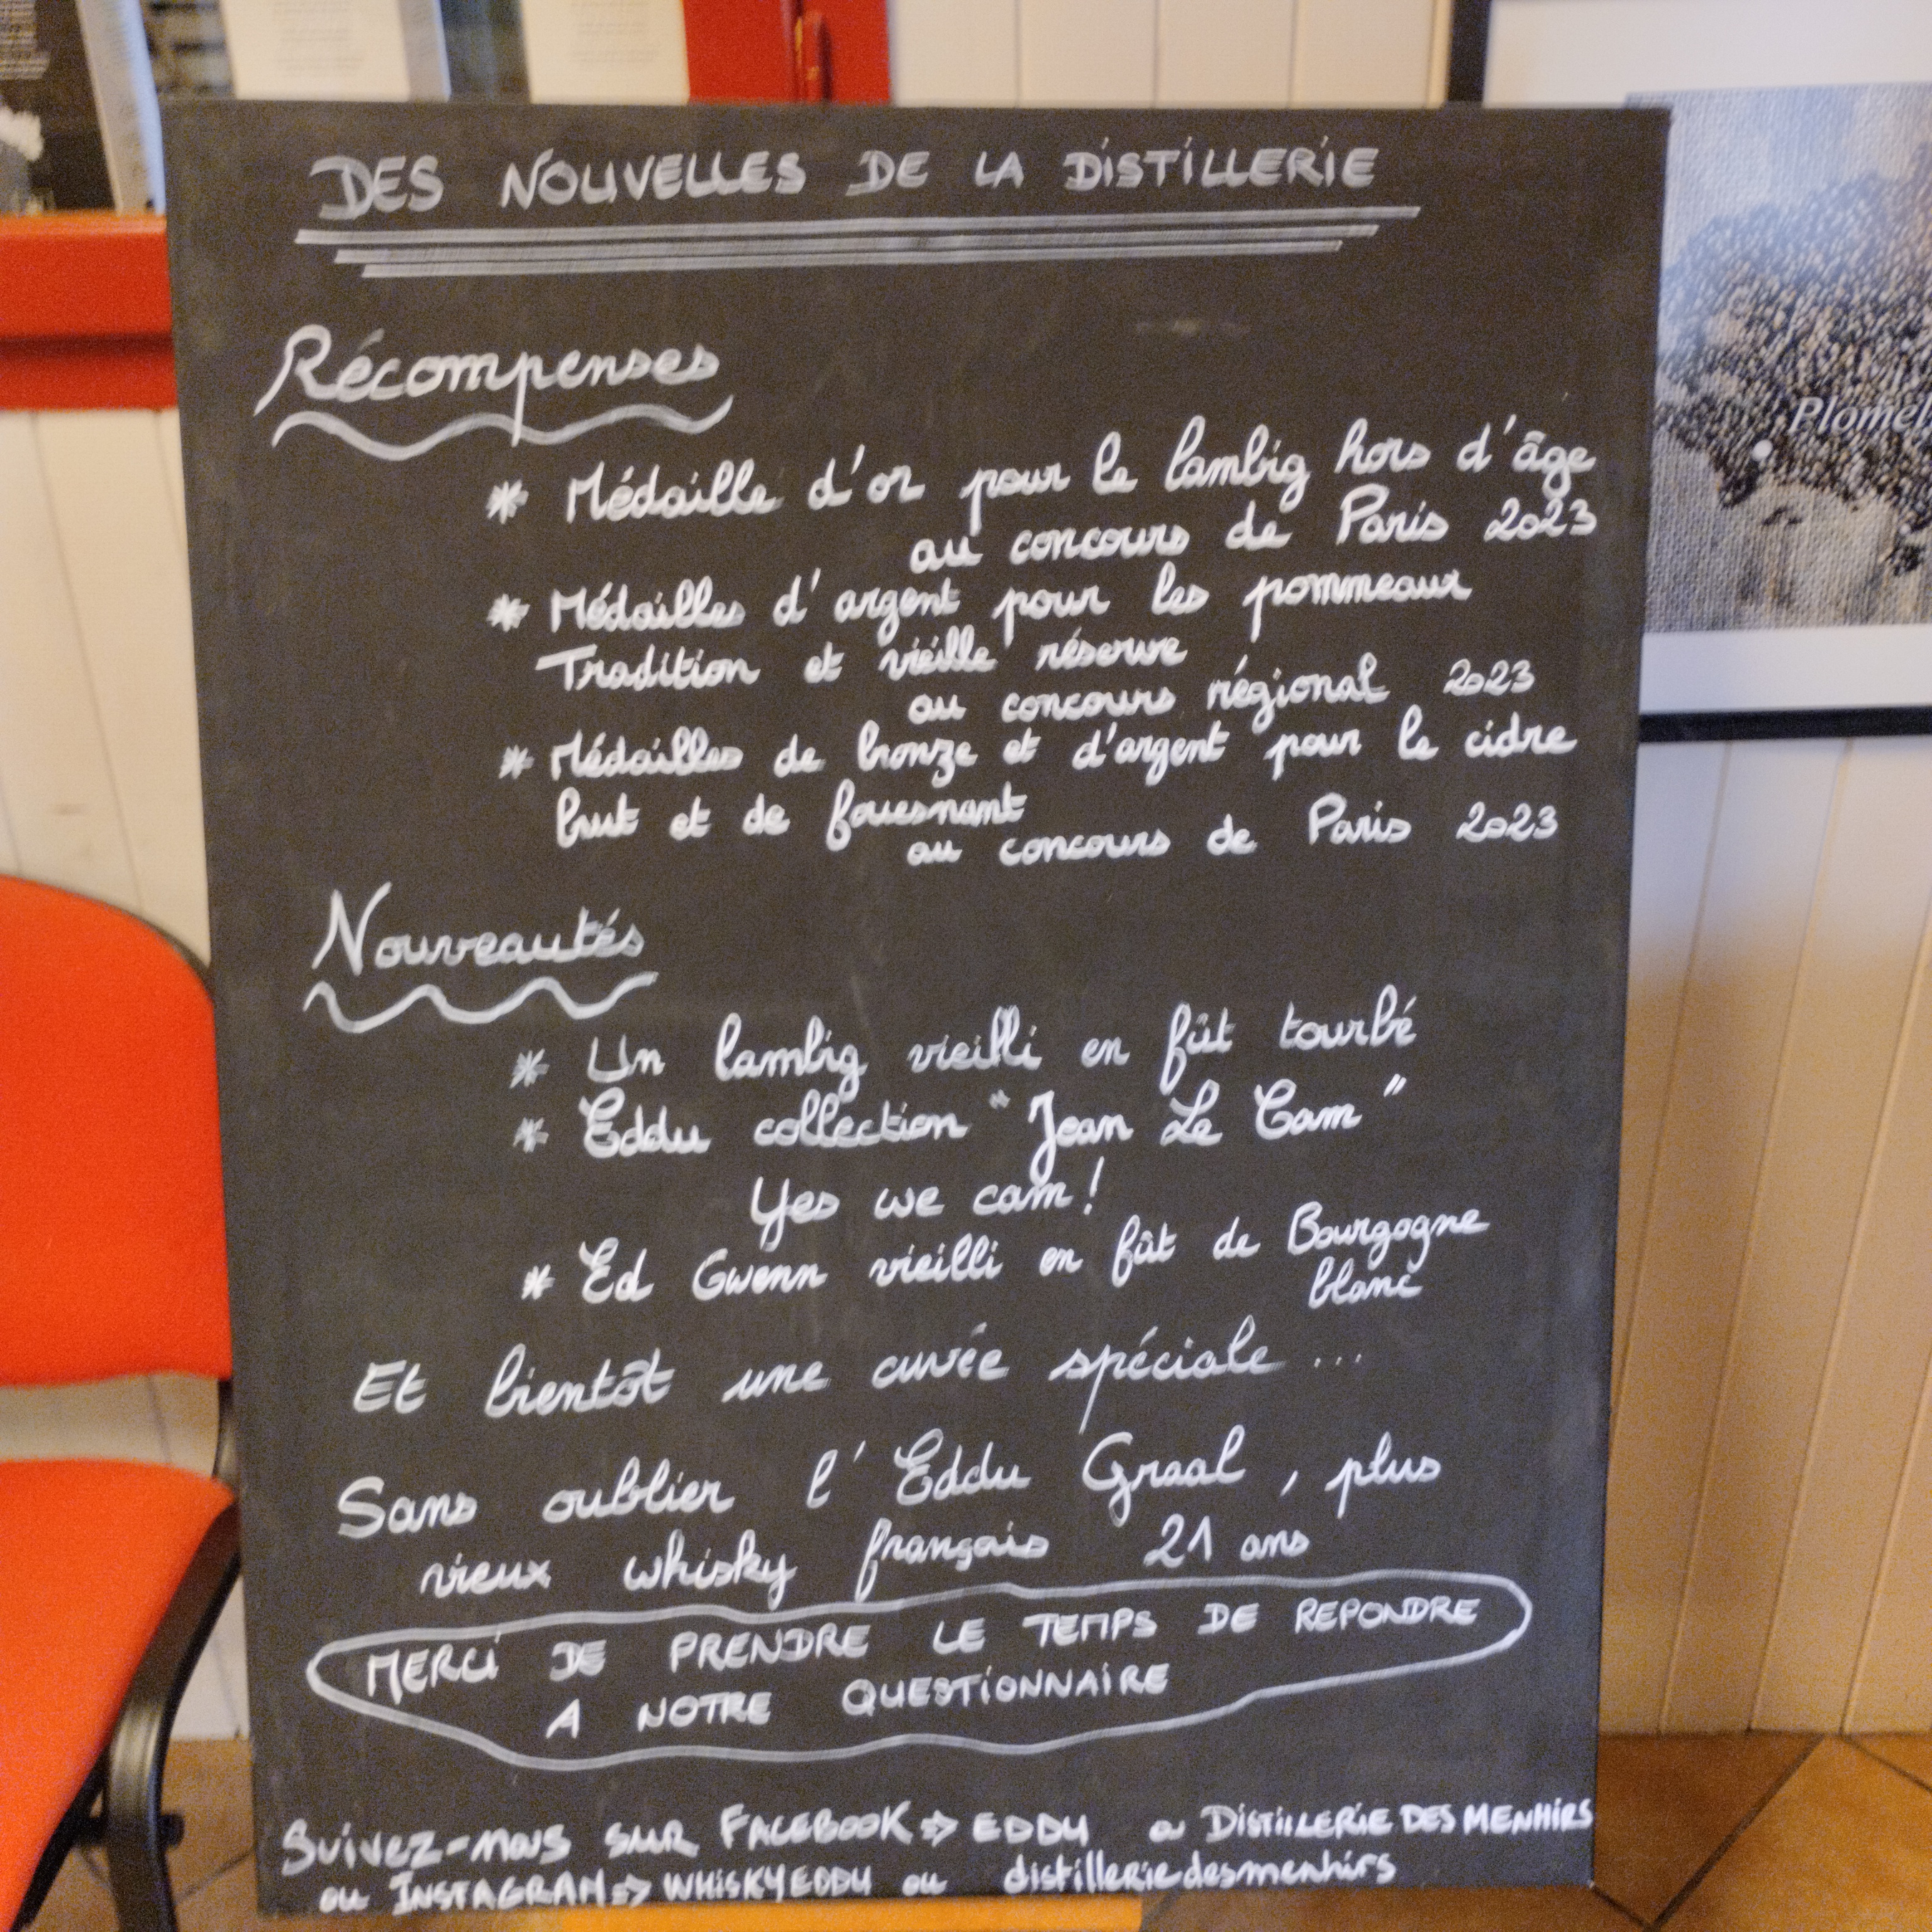 DES NOUVELLES DE LA DISTILLERIE
Récompenses
* Médaille d'or pour le lambig hors d'âge
au concours de Paris 2023
* Médailles d'argent pour les pommeaux
Tradition et vieille réserve
au concours régional 2023
* Médailles de bronze et d'argent pour le cidre
brut et de fouesnant
au concours de Paris 2023
Nouveautés
* Un lambig vieilli en fût tourbé
* Eddu collection "Jean Le Cam"
Yes we cam!
* Ed Gwenn vieilli en fût de Bourgogne
blanc
Et bientôt une cuvée spéciale ...
Sans oublier l'Eddu Graal, plus
vieux whisky français 21 ans
MERCI DE PRENDRE LE TEMPS DE REPONDRE
A NOTRE QUESTIONNAIRE
SUIVEZ-NOUS SUR FACEBOOK => EDDU ou DISTILLERIE DES MENHIRS
ou INSTAGRAM => WHISKYEDDU ou distilleriedesmenhirs